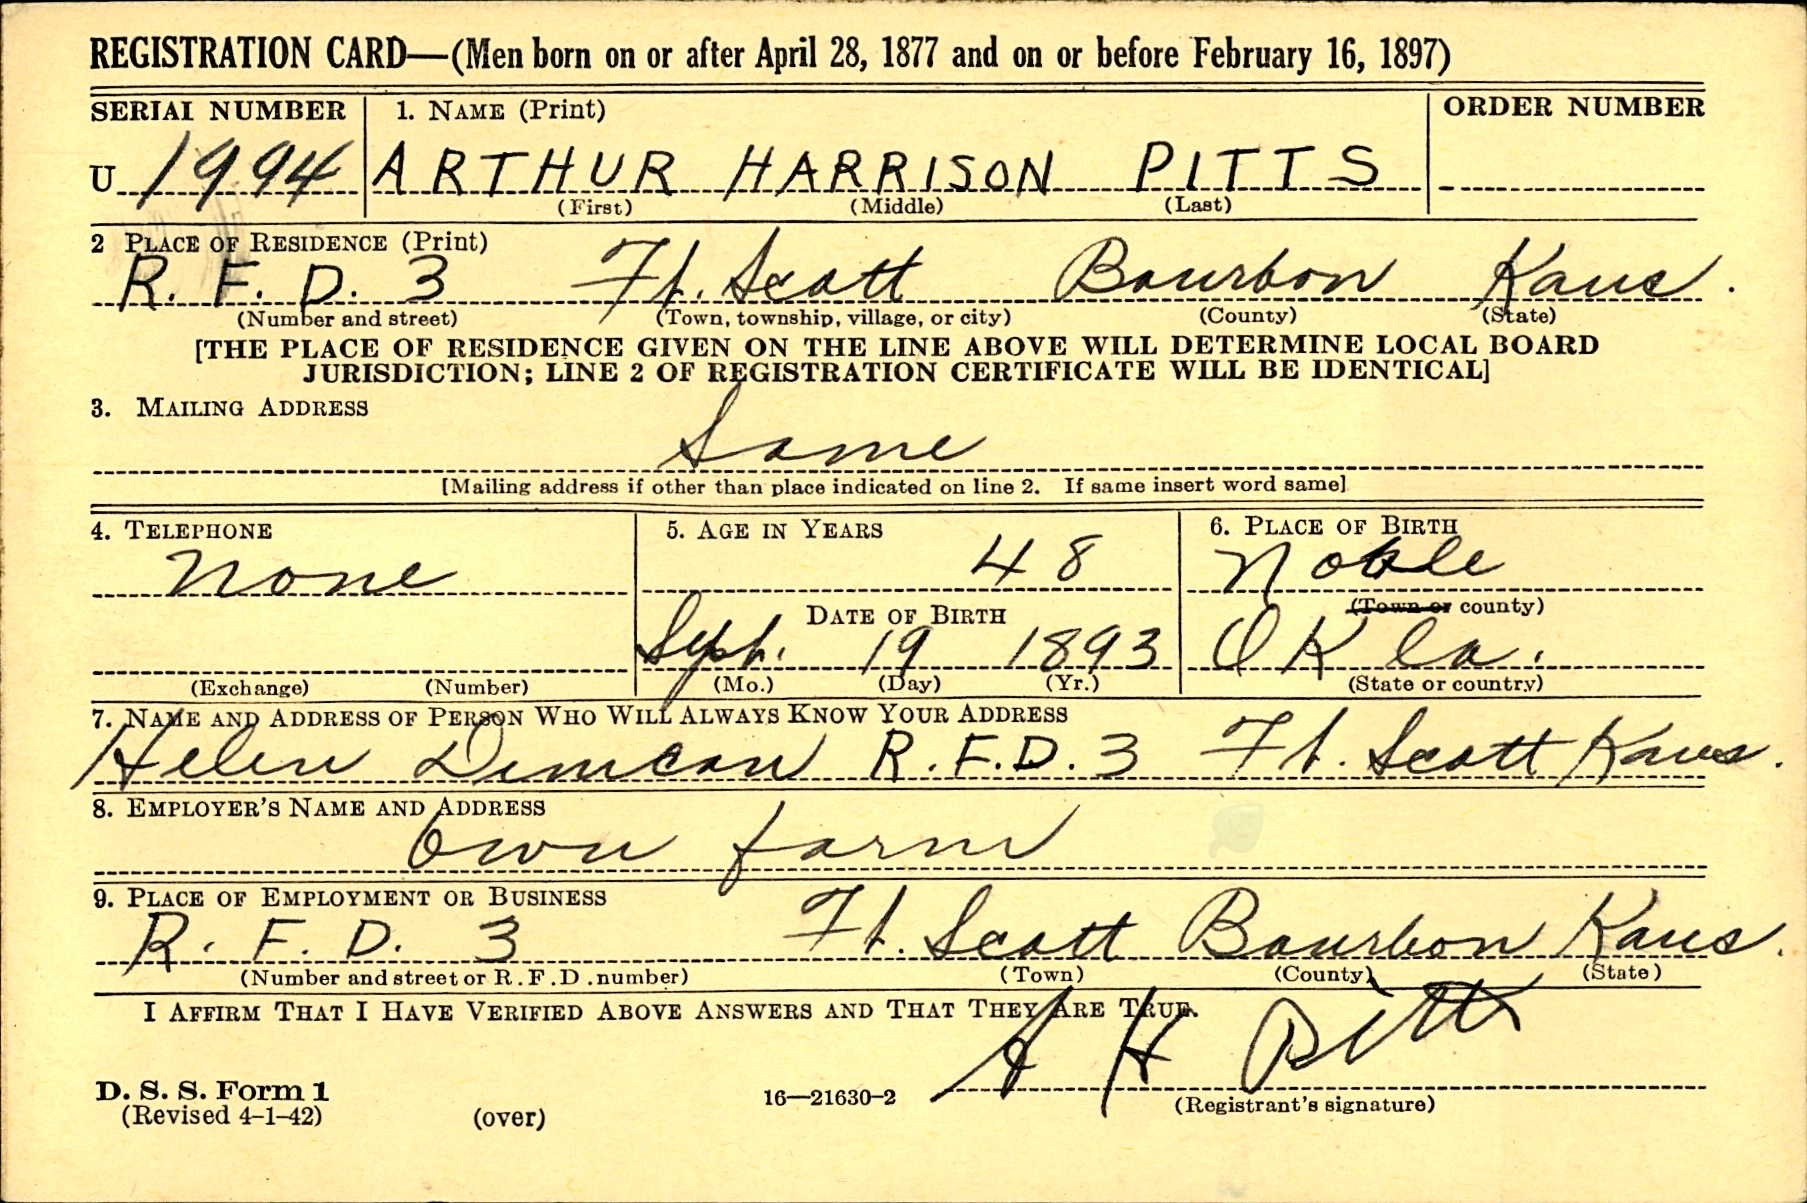 REGISTRATION CARD—(Men born on or after April 28, 1877 and on or before February 16, 1897)
SERIAL NUMBER 1. NAME (Print) ORDER NUMBER
U 1994 ARTHUR HARRISON PITTS
(First) (Middle) (Last)
2 PLACE OF RESIDENCE (Print)
R. F. D. 3 Ft. Scott Bourbon Kans.
(Number and street) (Town, township, village, or city) (County) (State)
[THE PLACE OF RESIDENCE GIVEN ON THE LINE ABOVE WILL DETERMINE LOCAL BOARD
JURISDICTION; LINE 2 OF REGISTRATION CERTIFICATE WILL BE IDENTICAL]
3. MAILING ADDRESS
Same
[Mailing address if other than place indicated on line 2. If same insert word same]
4. TELEPHONE 5. AGE IN YEARS 6. PLACE OF BIRTH
None 48 Noble
DATE OF BIRTH (Town or county)
Sept. 19 1893 Okla.
(Exchange) (Number) (Mo.) (Day) (Yr.) (State or country)
7. NAME AND ADDRESS OF PERSON WHO WILL ALWAYS KNOW YOUR ADDRESS
Helen Duncan R.F.D. 3 Ft. Scott Kans.
8. EMPLOYER'S NAME AND ADDRESS
Own farm
9. PLACE OF EMPLOYMENT OR BUSINESS
R. F. D. 3 Ft. Scott Bourbon Kans.
(Number and street or R. F. D. number) (Town) (County) (State)
I AFFIRM THAT I HAVE VERIFIED ABOVE ANSWERS AND THAT THEY ARE TRUE.
A H Pitts
D. S. S. Form 1
(Revised 4-1-42) (over) 16—21630-2 (Registrant's signature)